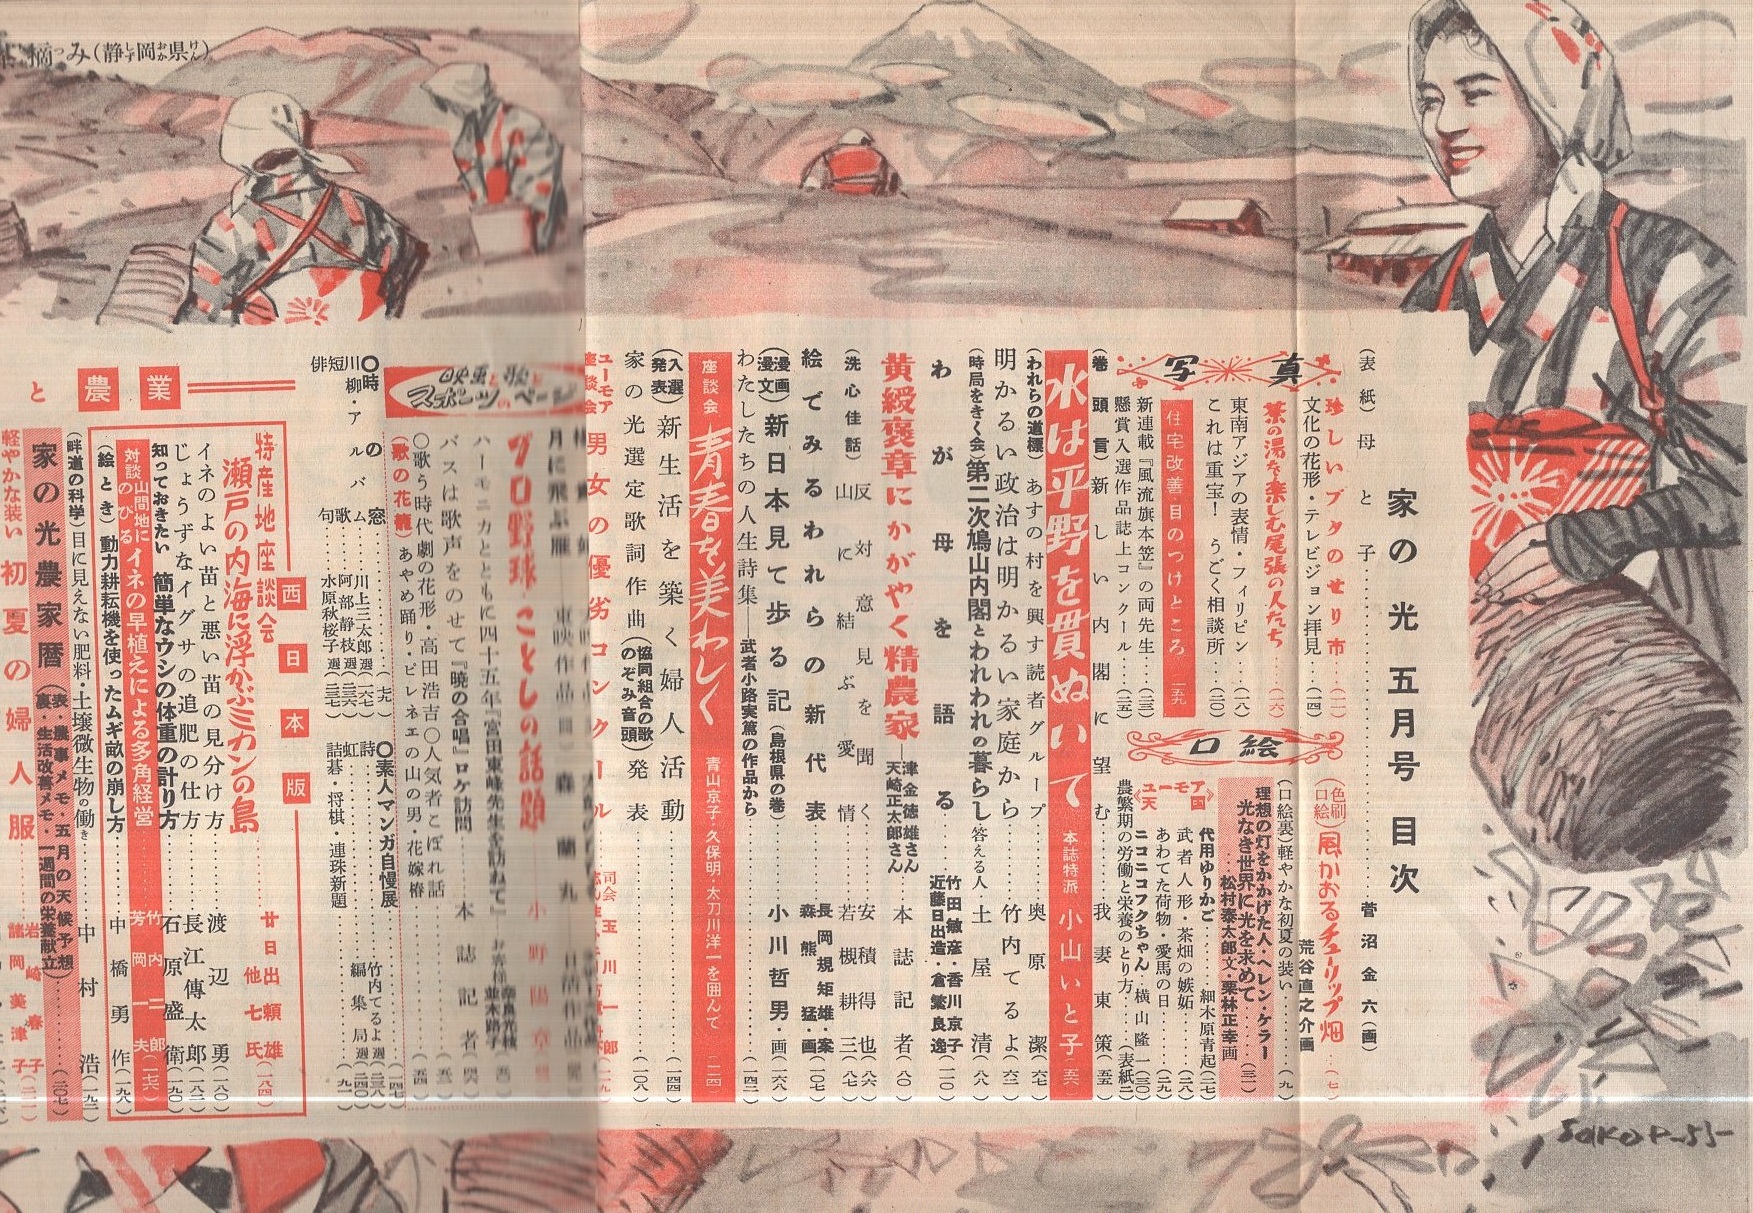 家の光 五月号 目次
(表紙) 母と子 菅沼金六(画)
写真
珍しいブタのせり市 (一一)
文化の花形・テレビジョン拝見 (一四)
茶の湯を楽しむ尾張の人たち (一六)
東南アジアの表情・フィリピン (一八)
これは重宝! うごく相談所 (二〇)
住宅改善・目のつけところ 一五九
新連載『風流旗本笠』の両先生 (三三)
懸賞入選作品誌上コンクール (三五)
口絵
(色刷口絵) 風かおるチューリップ畑 (七)
荒谷直之介画
(口絵裏) 軽やかな初夏の装い (九)
理想の灯をかかげた人・ヘレン・ケラー
光なき世界に光を求めて (三一)
松村泰太郎文・栗林正幸画
《ユーモア天国》
代用ゆりかご 細木原青起 (二七)
武者人形・茶畑の嫉妬 (二八)
あわてた荷物・愛馬の日 (二九)
ニコニコフクちゃん 横山隆一 (三〇)
農繁期の労働と栄養のとり方 (表紙二)
(巻頭言) 新しい内閣に望む 我妻東策 (五五)
水は平野を貫ぬいて 本誌特派 小山いと子 (五六)
(われらの道標) あすの村を興す読者グループ 奥原潔 (六七)
明かるい政治は明かるい家庭から 竹内てるよ (六二)
(時局をきく会) 第二次鳩山内閣とわれわれの暮らし 答える人 土屋清 (八八)
わが母を語る 竹田敏彦・香川京子 近藤日出造・倉繁良逸 (一一〇)
黄綬褒章にかがやく精農家 ―津金徳雄さん 天崎正太郎さん 本誌記者 (八〇)
(洗心佳話) 反対意見を聞く 安積得也 (八六)
山に結ぶ愛情 若槻耕三 (八七)
絵でみるわれらの新代表 長岡規矩雄・案 森熊猛・画 (一〇七)
(漫画漫文) 新日本見て歩る記 (島根県の巻) 小川哲男・画 (一六八)
わたしたちの人生詩集―武者小路実篤の作品から (一四二)
座談会 青春を美わしく 青山京子・久保明・太刀川洋一を囲んで (二二四)
(入選発表) 新生活を築く婦人活動 (一四四)
家の光選定歌詞作曲 (協同組合の歌 のぞみ音頭) 発表 (一〇八)
ユーモア座談会 男女の優劣コンクール 司会 玉川一郎
映画と歌とスポーツのページ
月に飛ぶ雁 東映作品 森蘭丸 日活作品
プロ野球ことしの話題 小野陽章
ハーモニカとともに四十五年『宮田東峰先生を訪ねて』 お客様 奈良光枝 並木路子
バスは歌声をのせて『暁の合唱』ロケ訪問 本誌記者 (四六)
〇歌う時代劇の花形・高田浩吉〇人気者こぼれ話
(歌の花籠) あやめ踊り・ピレネエの山の男・花嫁椿
〇時の窓 (一七九)
短歌・アルバム
川柳
俳句
川上三太郎選 (一六七)
阿部静枝選 (二三六)
水原秋桜子選 (二三七)
〇素人マンガ自慢展 (一四七)
詩 竹内てるよ選 (二三八)
虹 編集局選 (二四〇)
詰碁・将棋・連珠新題 (九一)
農業と
西日本版
特産地座談会 廿日出頼雄 他七氏
瀬戸の内海に浮かぶミカンの島 (一八四)
イネのよい苗と悪い苗の見分け方 渡辺勇 (一八〇)
じょうずなイグサの追肥の仕方 長江傳太郎 (一八二)
知っておきたい 簡単なウシの体重の計り方 石原盛衛 (一九〇)
対談 山間地にのびる イネの早植えによる多角経営 竹内二郎 芳岡一夫 (一七六)
(絵とき) 動力耕転機を使ったムギ畝の崩し方 中橋勇作 (一九八)
(畔道の科学) 目に見えない肥料・土壌微生物の働き 中村浩 (一九二)
家の光農家暦 (表・農事メモ・五月の天候予想 裏・生活改善メモ・一週間の栄養献立) (二〇七)
軽やかな装い 初夏の婦人服 岩崎春子 諸岡美津子 (二一一)
摘つみ(静しず岡おか県けん)